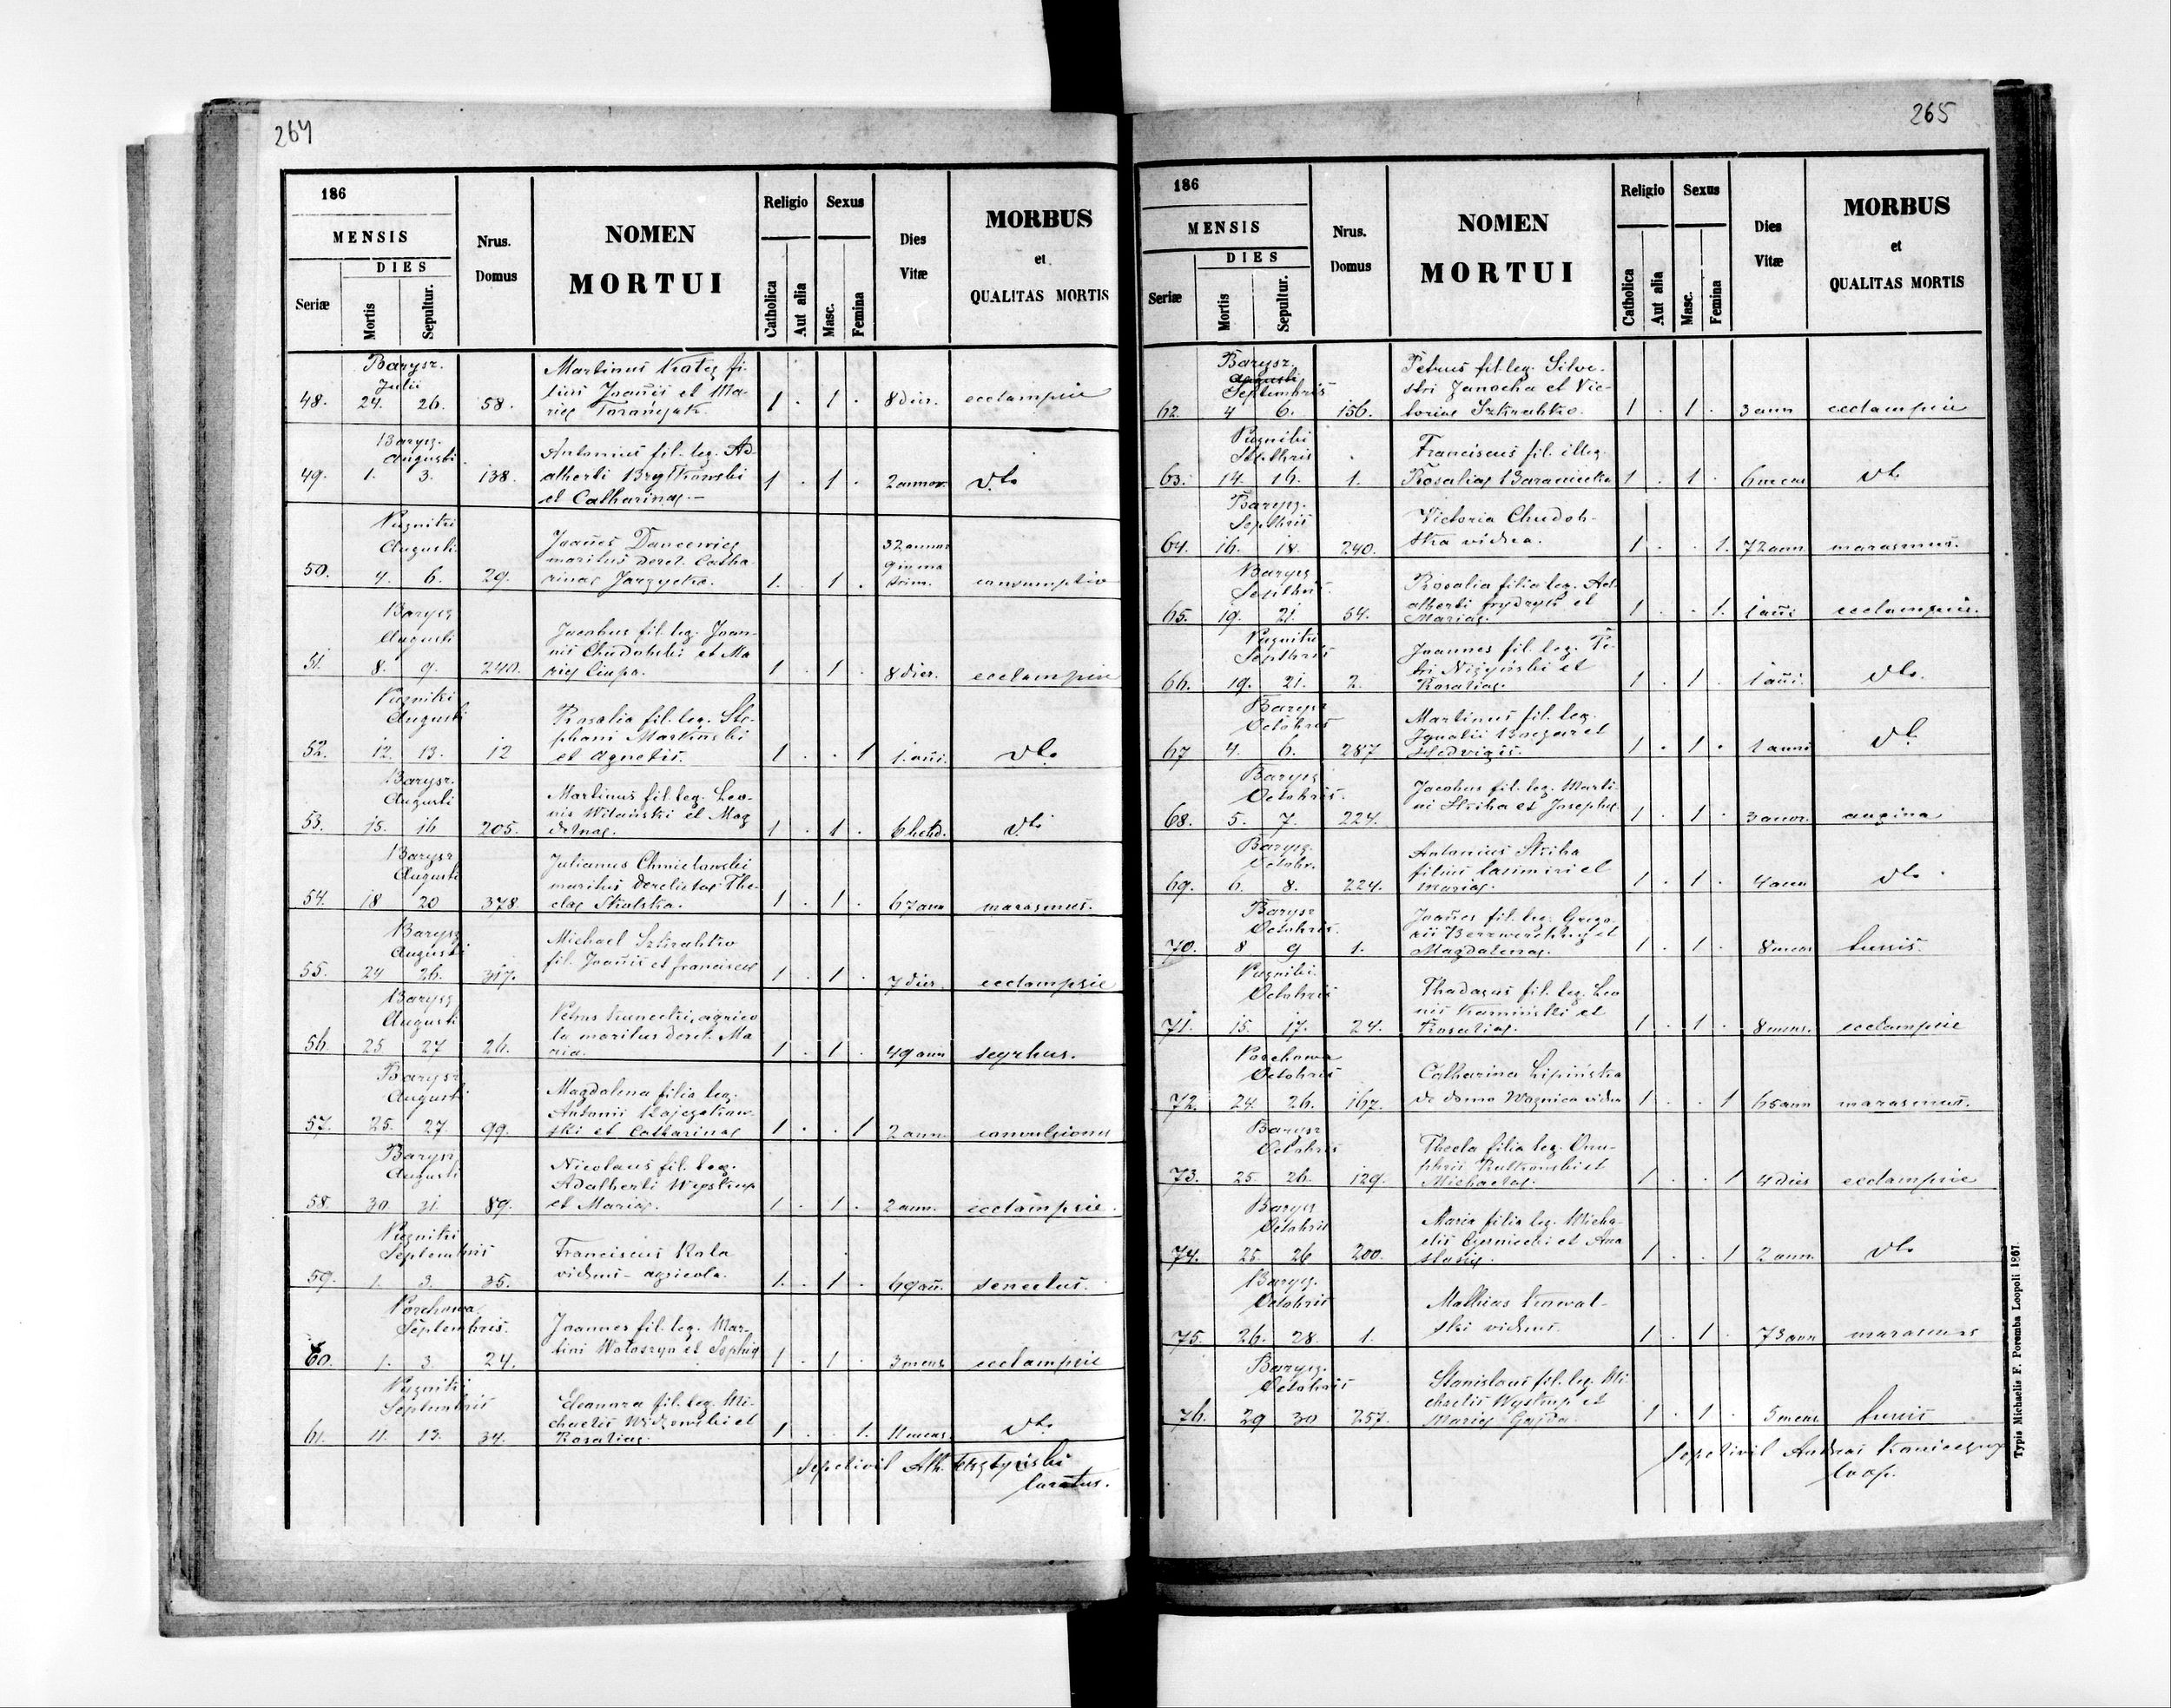 264
186
MENSIS
DIES
Seriæ
Mortis
Sepultur.
Nrus.
Domus
NOMEN
MORTUI
Religio
Catholica
Aut alia
Sexus
Masc.
Femina
Dies
Vitæ
MORBUS
et
QUALITAS MORTIS
Barysz.
Julii
48. 24. 26. 58.
Martinus fi-
lius Joañis et Ma-
riæ
1 . 1 . 8 dier. ecclampsie
Barysz.
Augusti
49. 1. 3. 138.
Antonius fil. leg. Ad-
alberti Brytkowski
et Catharinæ.
1 . 1 . 2 annor. dto
Puzniki
Augusti
50. 4. 6. 29.
Joañes Dancewicz
maritus derel. Catha-
rinæ
1. 1. 32 annor
consumptio
Barysz
Augusti
51. 8. 9. 240.
Jacobus fil. leg. Joan-
nis Chudohski et Ma
riæ Ciupa.
1 . 1 . 8 dier. ecclampsie
Puzniki
Augusti
52. 12. 13. 12
Rosalia fil. leg. Ste-
phani
et Agnetis.
1 . . 1 1. añi. dto
Barysz.
Augusti
53. 15. 16 205.
Martinus fil. leg. Leo-
nis Witański et Mag
delnæ.
1 . 1 . 6 hebd. dto
Barysz
Augusti
54. 18 20 378.
Julianus Chmielowski
maritus derelictæ The-
clæ Skalska.
1 . 1 . 67 ann marasmus.
Barysz
Augusti
55. 24 26. 317.
Michael Szkrabko
fil. Joañis et Franciscæ
1 . 1 . 7 dier. ecclampsie
Barysz
Augusti
56. 25 27 26.
Petrus Kunecki, agrico
la maritus derel. Ma
ria.
1 . 1 . 49 ann scyrhus.
Barysz
Augusti
57. 25. 27 99.
Magdalena filia leg.
Antonii
ski et Catharinæ
1 . . 1 2 ann. convulsiones
Barysz
Augusti
58. 30 31. 89.
Nicolaus fil. leg.
Adalberti Wystrup
et Mariæ.
1 . 1 . 2 ann. ecclampsie.
Puzniki
Septembris
59. 1. 3. 35.
Franciscus Kala
viduus - agricola.
1. 1 . 69 añ. senectus.
Porchowa.
Septembris.
60. 1. 3. 24.
Joannes fil. leg. Mar-
tini Wołoszyn et Sophiæ
1 . 1 . 3 mens ecclampsie
Puzniki
Septembris
61. 11. 13. 34.
Eleonora fil. leg. Mi-
chaelis et
Rosaliæ.
1 . . 1. 11 mens dto
sepelivit
Curatus.
265
186
MENSIS
DIES
Seriæ
Mortis
Sepultur.
Nrus.
Domus
NOMEN
MORTUI
Religio
Catholica
Aut alia
Sexus
Masc.
Femina
Dies
Vitæ
MORBUS
et
QUALITAS MORTIS
Barysz.
Augusti
Septembris
62. 4 6. 156.
Petrus fil. leg. Silve-
stri Janocha et Vic-
toriæ Szkrabko.
1 . 1 . 3 ann ecclampsie
Puzniki
Septbris
63. 14. 16. 1.
Franciscus fil. illeg.
Rosaliæ Baraniecka
1 . 1 . 6 mens dto
Barysz.
Septbris
64. 16. 18. 240.
Victoria Chudoh-
ska vidua.
1 . . 1. 72 ann marasmus.
Barysz
Septbris.
65. 19. 21. 54.
Rosalia filia leg. Ad-
alberti Frydryk et
Mariæ.
1 . . 1. 1 añi ecclampsie.
Puzniki
Septbris
66. 19. 21. 2.
Joannes fil. leg. Pe-
tri Niżyński et
Rosaliæ.
1 . 1 . 1 añi. dto.
Barysz
Octobris
67 4. 6. 287
Martinus fil. leg.
Ignatii et
Hedvigis.
1 . 1 . 1 anni dto
Barysz
Octobris.
68. 5. 7. 224.
Jacobus fil. leg. Marti-
ni Skiba et Josephæ
1 . 1 . 3 annor. angina
Barysz.
Octobr.
69. 6. 8. 224.
Antonius Skiba
filius Casimiri et
Mariæ.
1 . 1 . 4 ann dto
Barysz
Octobris.
70. 8 9 1.
Joañes fil. leg. Grego-
rii et
Magdalenæ.
1 . 1 . 8 mens tussis.
Puzniki.
Octobris
71. 15. 17. 24.
Thadæus fil. leg. Leo
nis Kamiński et
Rosaliæ.
1 . 1 . 8 mens. ecclampsie
Porchowa
Octobris
72. 24. 26. 167.
Catharina Lipińska
de domo Woznica vidua
1 . . 1 65 ann marasmus.
Barysz
Octobris
73. 25. 26. 129.
Thecla filia leg. Onu-
phrii Rutkowski et
Michaelæ.
1 . . 1 4 dies ecclampsie
Barysz
Octobris
74. 25. 26 200.
Maria filia leg. Micha-
elis Czerniecki et Ana
stasiæ.
1 . . 1 2 ann. dto
Barysz.
Octobris
75. 26. 28. 1.
Mathias Kowal-
ski viduus.
1 . 1 . 73 ann marasmus
Barysz.
Octobris
76. 29 30 257.
Stanislaus fil. leg. Mi-
chaelis Wystrup et
Mariæ Gajda
1 . 1 . 5 mens tussis
sepelivit Andreas
Coop.
Typis Michaelis F. Poremba Leopoli 1867.